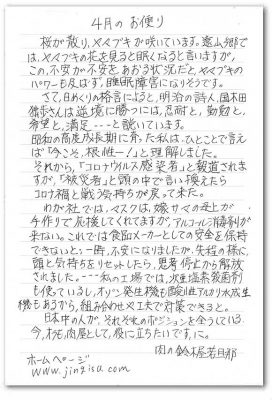 4月のお便り
桜が散り、ヤマブキが咲いています。遠山郷で
は、ヤマブキの花を見ると眠くなると言いますが、
この、不安が不安をあおる状況だと、ヤマブキの
パワーも及ばず、睡眠障害になりそうです。
さて、日めくりの格言によると、明治の詩人、国木田
独歩さんは逆境に勝つには、忍耐と、勤勉と、
希望と、満足…と説いています。
昭和の高度成長期に育った私は、ひとことで言え
ば「今こそ、根性ー!」と理解しました。
それから、「コロナウイルス感染者」と報道されま
すが、「被災者」と頭の中で言い換えたら
コロナ禍と戦う気持ちが戻って来た。
わが社では、マスクは、嫁サマの母上が
手作りで応援してくれてますが、アルコール消毒剤が
来ない。これでは食品メーカーとしての安全を保持
できないと、一時、不安になりましたが、先程の様に、
頭と気持ちをリセットしたら、思考停止から解放
されました。…私の工場では、次亜塩素酸製剤
も使っているし、オゾン発生機も酸性アルカリ水成生
機もあるから、組み合わせ×工夫で対策できると。
日本中の人が、それぞれのポジションを全うしている
今、わも、肉屋として、役に立ちたいです、に。
肉の鈴木屋若旦那
ホームページ
www.jingisu.com